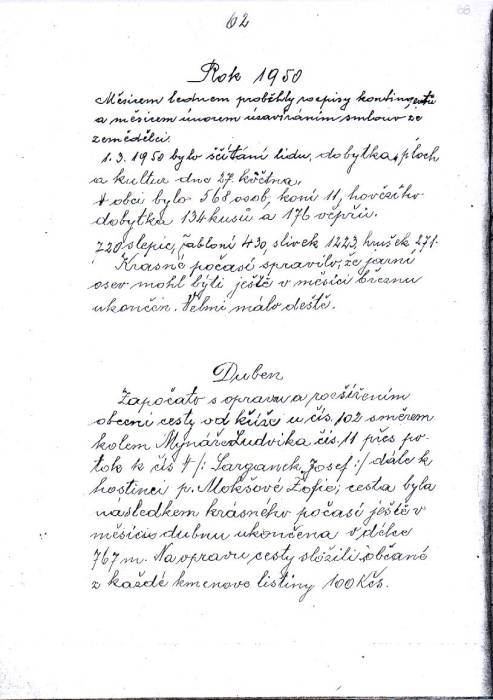 62
Rok 1950
Měsícem lednem proběhly rozpisy kontingentů
a měsícem únorem uzavíráním smluv ze
zemědělci.
1. 3. 1950 bylo sčítání lidu, dobytka, ploch
a kultur dne 27. května.
V obci bylo 568 osob, koní 11, hovězího
dobytka 134 kusů a 176 vepřů.
720 slepic, jabloní 430, slivek 1223, hrušek 271.
Krásné počasí spravilo, že jarní
osev mohl býti ještě v měsíci březnu
ukončen. Velmi málo deště.
Duben
Započato s opravou a rozšířením
obecní cesty od kříže u čís. 102 směrem
kolem Mynáře Ludvika čís. 11 přes po-
tok k čís 4 /: Sarganek Josef :/ dále k
hostinci p. Mokšové Žofie, cesta byla
následkem krásného počasí ještě v
měsíci dubnu ukončena v délce
767 m. Na opravu cesty složili občané
z každé kmenové listiny 100 Kčs.